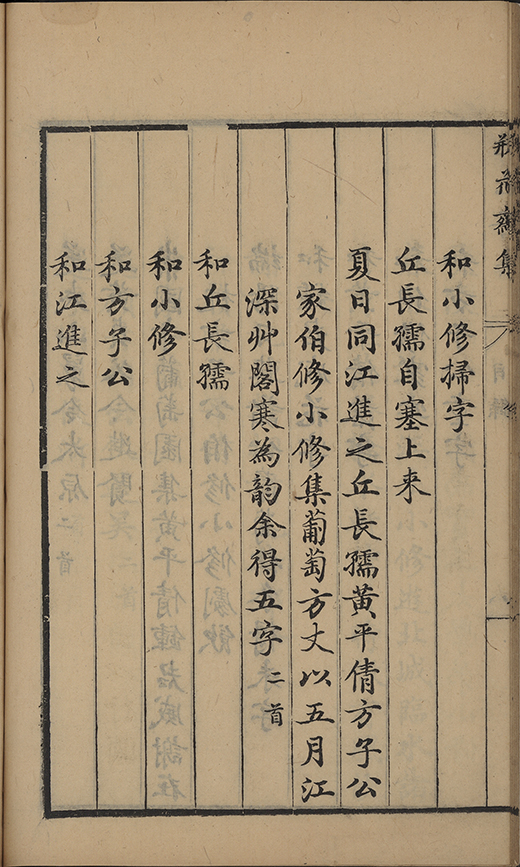 和小修掃字
丘長孺自塞上来
夏日同江進之丘長孺黃平倩方子公
家伯修小修集葡萄方丈以五月江
深艸閣寒為韵余得五字二首
和丘長孺
和小修
和方子公
和江進之